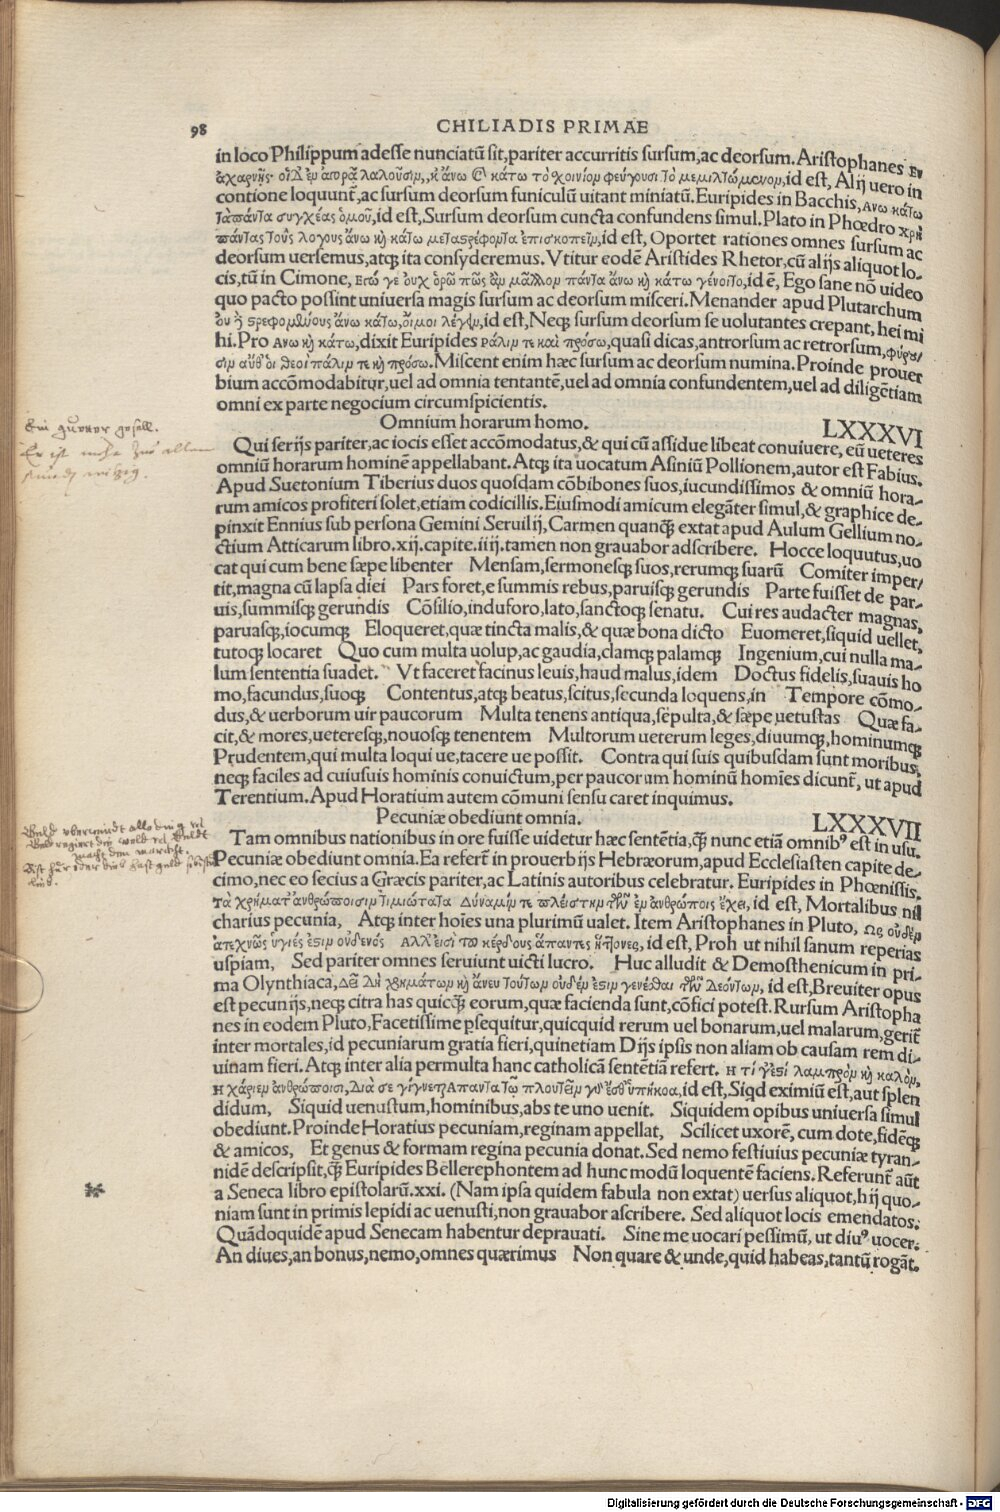 98
CHILIADIS PRIMAE
in loco Philippum adesse nunciatũ sit, pariter accurritis sursum, ac deorsum. Aristophanes
λαλοῦσιν, κάτω φεύγουσι id est, Alij uero in
contione loquunt̃, ac sursum deorsum funiculũ uitant miniatũ. Euripides in Bacchis, Ανω κάτω
τὰ πάντα συγχέας ὁμοῦ, id est, Sursum deorsum cuncta confundens simul. Plato in Phœdro χρὴ
πάντας τοὺς λόγους ἄνω κὴ κάτω μεταστρέφοντα ἐπισκοπεῖν, id est, Oportet rationes omnes sursum ac
deorsum uersemus, atq; ita consyderemus. Vtitur eodẽ Aristides Rhetor, cũ alijs aliquot lo-
cis, tũ in Cimone, Εγώ γε οὐχ ὁρῶ πῶς ἂν μᾶλλον πάντα ἄνω κὴ κάτω γένοιτο, id ẽ, Ego sane nõ uideo
quo pacto possint uniuersa magis sursum ac deorsum misceri. Menander apud Plutarchum
ἄνω κάτω, οἴμοι λέγειν, id est, Neq; sursum deorsum se uolutantes crepant, hei mi
hi. Pro Ανω κὴ κάτω, dixit Euripides πάλιν τε καὶ πρόσω, quasi dicas, antrorsum ac retrorsum, φύρου/
σιν αὖθ' οἱ θεοὶ πάλιν τε κὴ πρόσω. Miscent enim hæc sursum ac deorsum numina. Proinde prouer
bium accõmodabitur, uel ad omnia tentantẽ, uel ad omnia confundentem, uel ad diligẽtiam
omni ex parte negocium circumspicientis.
Omnium horarum homo. LXXXVI
Ein guetter gesell.
Er ist
Qui serijs pariter, ac iocis esset accõmodatus, & qui cũ assidue libeat conuiuere, eũ ueteres
omniũ horarum hominẽ appellabant. Atq; ita uocatum Asiniũ Pollionem, autor est Fabius.
Apud Suetonium Tiberius duos quosdam cõbibones suos, iucundissimos & omniũ hora-
rum amicos profiteri solet, etiam codicillis. Eiusmodi amicum elegãter simul, & graphice de-
pinxit Ennius sub persona Gemini Seruilij, Carmen quanq̃; extat apud Aulum Gellium no-
ctium Atticarum libro. xij. capite. iiij. tamen non grauabor adscribere. Hocce loquutus, uo
cat qui cum bene sæpe libenter Mensam, sermonesq; suos, rerumq; suarũ Comiter imper/
tit, magna cũ lapsa diei Pars foret, e summis rebus, paruisq; gerundis Parte fuisset de par-
uis, summisq; gerundis Cõsilio, induforo, lato, sanctoq; senatu. Cui res audacter magnas,
paruasq;, iocumq; Eloqueret, quæ tincta malis, & quæ bona dicto Euomeret, siquid uellet,
tutoq; locaret Quo cum multa uolup, ac gaudia, clamq; palamq; Ingenium, cui nulla ma-
lum sententia suadet. Vt faceret facinus leuis, haud malus, idem Doctus fidelis, suauis ho
mo, facundus, suoq; Contentus, atq; beatus, scitus, secunda loquens, in Tempore cõmo-
dus, & uerborum uir paucorum Multa tenens antiqua, sepulta, & sæpe uetustas Quæ fa-
cit, & mores, ueteresq;, nouosq; tenentem Multorum ueterum leges, diuumq;, hominumq;
Prudentem, qui multa loqui ue, tacere ue possit. Contra qui suis quibusdam sunt moribus,
neq; faciles ad cuiusuis hominis conuictum, per paucorum hominũ homĩes dicunt̃, ut apud
Terentium. Apud Horatium autem cõmuni sensu caret inquimus.
Pecuniæ obediunt omnia. LXXXVII
Tam omnibus nationibus in ore fuisse uidetur hæc sentẽtia, q̃; nunc etiã omnibꝰ est in usu.
Pecuniæ obediunt omnia. Ea refert̃ in prouerbijs Hebræorum, apud Ecclesiasten capite de-
cimo, nec eo secius a Græcis pariter, ac Latinis autoribus celebratur. Euripides in Phœnissis.
τὰ χρήματ' ἀνθρώποισιν τιμιώτατα Δύναμίν τε πλείστην τῶν ἐν ἀνθρώποις ἔχει, id est, Mortalibus nil
charius pecunia, Atq; inter hoĩes una plurimũ ualet. Item Aristophanes in Pluto, Ως οὐδὲν
ἀτεχνῶς ὑγιές ἐστιν οὐδενός Αλλ' εἰσὶ τοῦ κέρδους ἅπαντες ἥττονες, id est, Proh ut nihil sanum reperias
uspiam, Sed pariter omnes seruiunt uicti lucro. Huc alludit & Demosthenicum in pri-
ma Olynthiaca, Δεῖ Δὴ χρημάτων κὴ ἄνευ τούτων οὐδέν ἐστιν γενέσθαι τῶν Δεόντων, id est, Breuiter opus
est pecunijs, neq; citra has quicq̃; eorum, quæ facienda sunt, cõfici potest. Rursum Aristopha
nes in eodem Pluto, Facetissime ꝑsequitur, quicquid rerum uel bonarum, uel malarum, gerit̃
inter mortales, id pecuniarum gratia fieri, quinetiam Dijs ipsis non aliam ob causam rem di-
uinam fieri. Atq; inter alia permulta hanc catholicã sentẽtiã refert. Η τί γ' ἐστὶ λαμπρὸν κὴ καλὸν,
Η χάριεν ἀνθρώποισι, Διὰ σὲ γίγνεται Απαντα τῷ πλουτεῖν γάρ ἐσθ' ὑπήκοα, id est, Siqd eximiũ est, aut splen
didum, Siquid uenustum, hominibus, abs te uno uenit. Siquidem opibus uniuersa simul
obediunt. Proinde Horatius pecuniam, reginam appellat, Scilicet uxorẽ, cum dote, fidẽq;
& amicos, Et genus & formam regina pecunia donat. Sed nemo festiuius pecuniæ tyran-
nidẽ descripsit, q̃; Euripides Bellerephontem ad hunc modũ loquentẽ faciens. Referunt̃ aũt
a Seneca libro epistolarũ. xxi. (Nam ipsa quidem fabula non extat) uersus aliquot, hij quo-
niam sunt in primis lepidi ac uenusti, non grauabor ascribere. Sed aliquot locis emendatos.
Quãdoquidẽ apud Senecam habentur deprauati. Sine me uocari pessimũ, ut diuꝰ uocer.
An diues, an bonus, nemo, omnes quærimus Non quare & unde, quid habeas, tantũ rogãt.
Digitalisierung gefördert durch die Deutsche Forschungsgemeinschaft - DFG